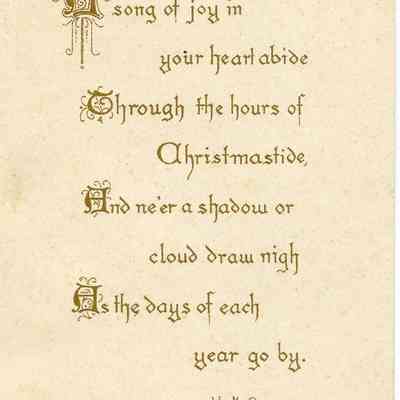 A song of joy in
your heart abide
Through the hours of
Christmastide,
And ne'er a shadow or
cloud draw nigh
As the days of each
year go by.